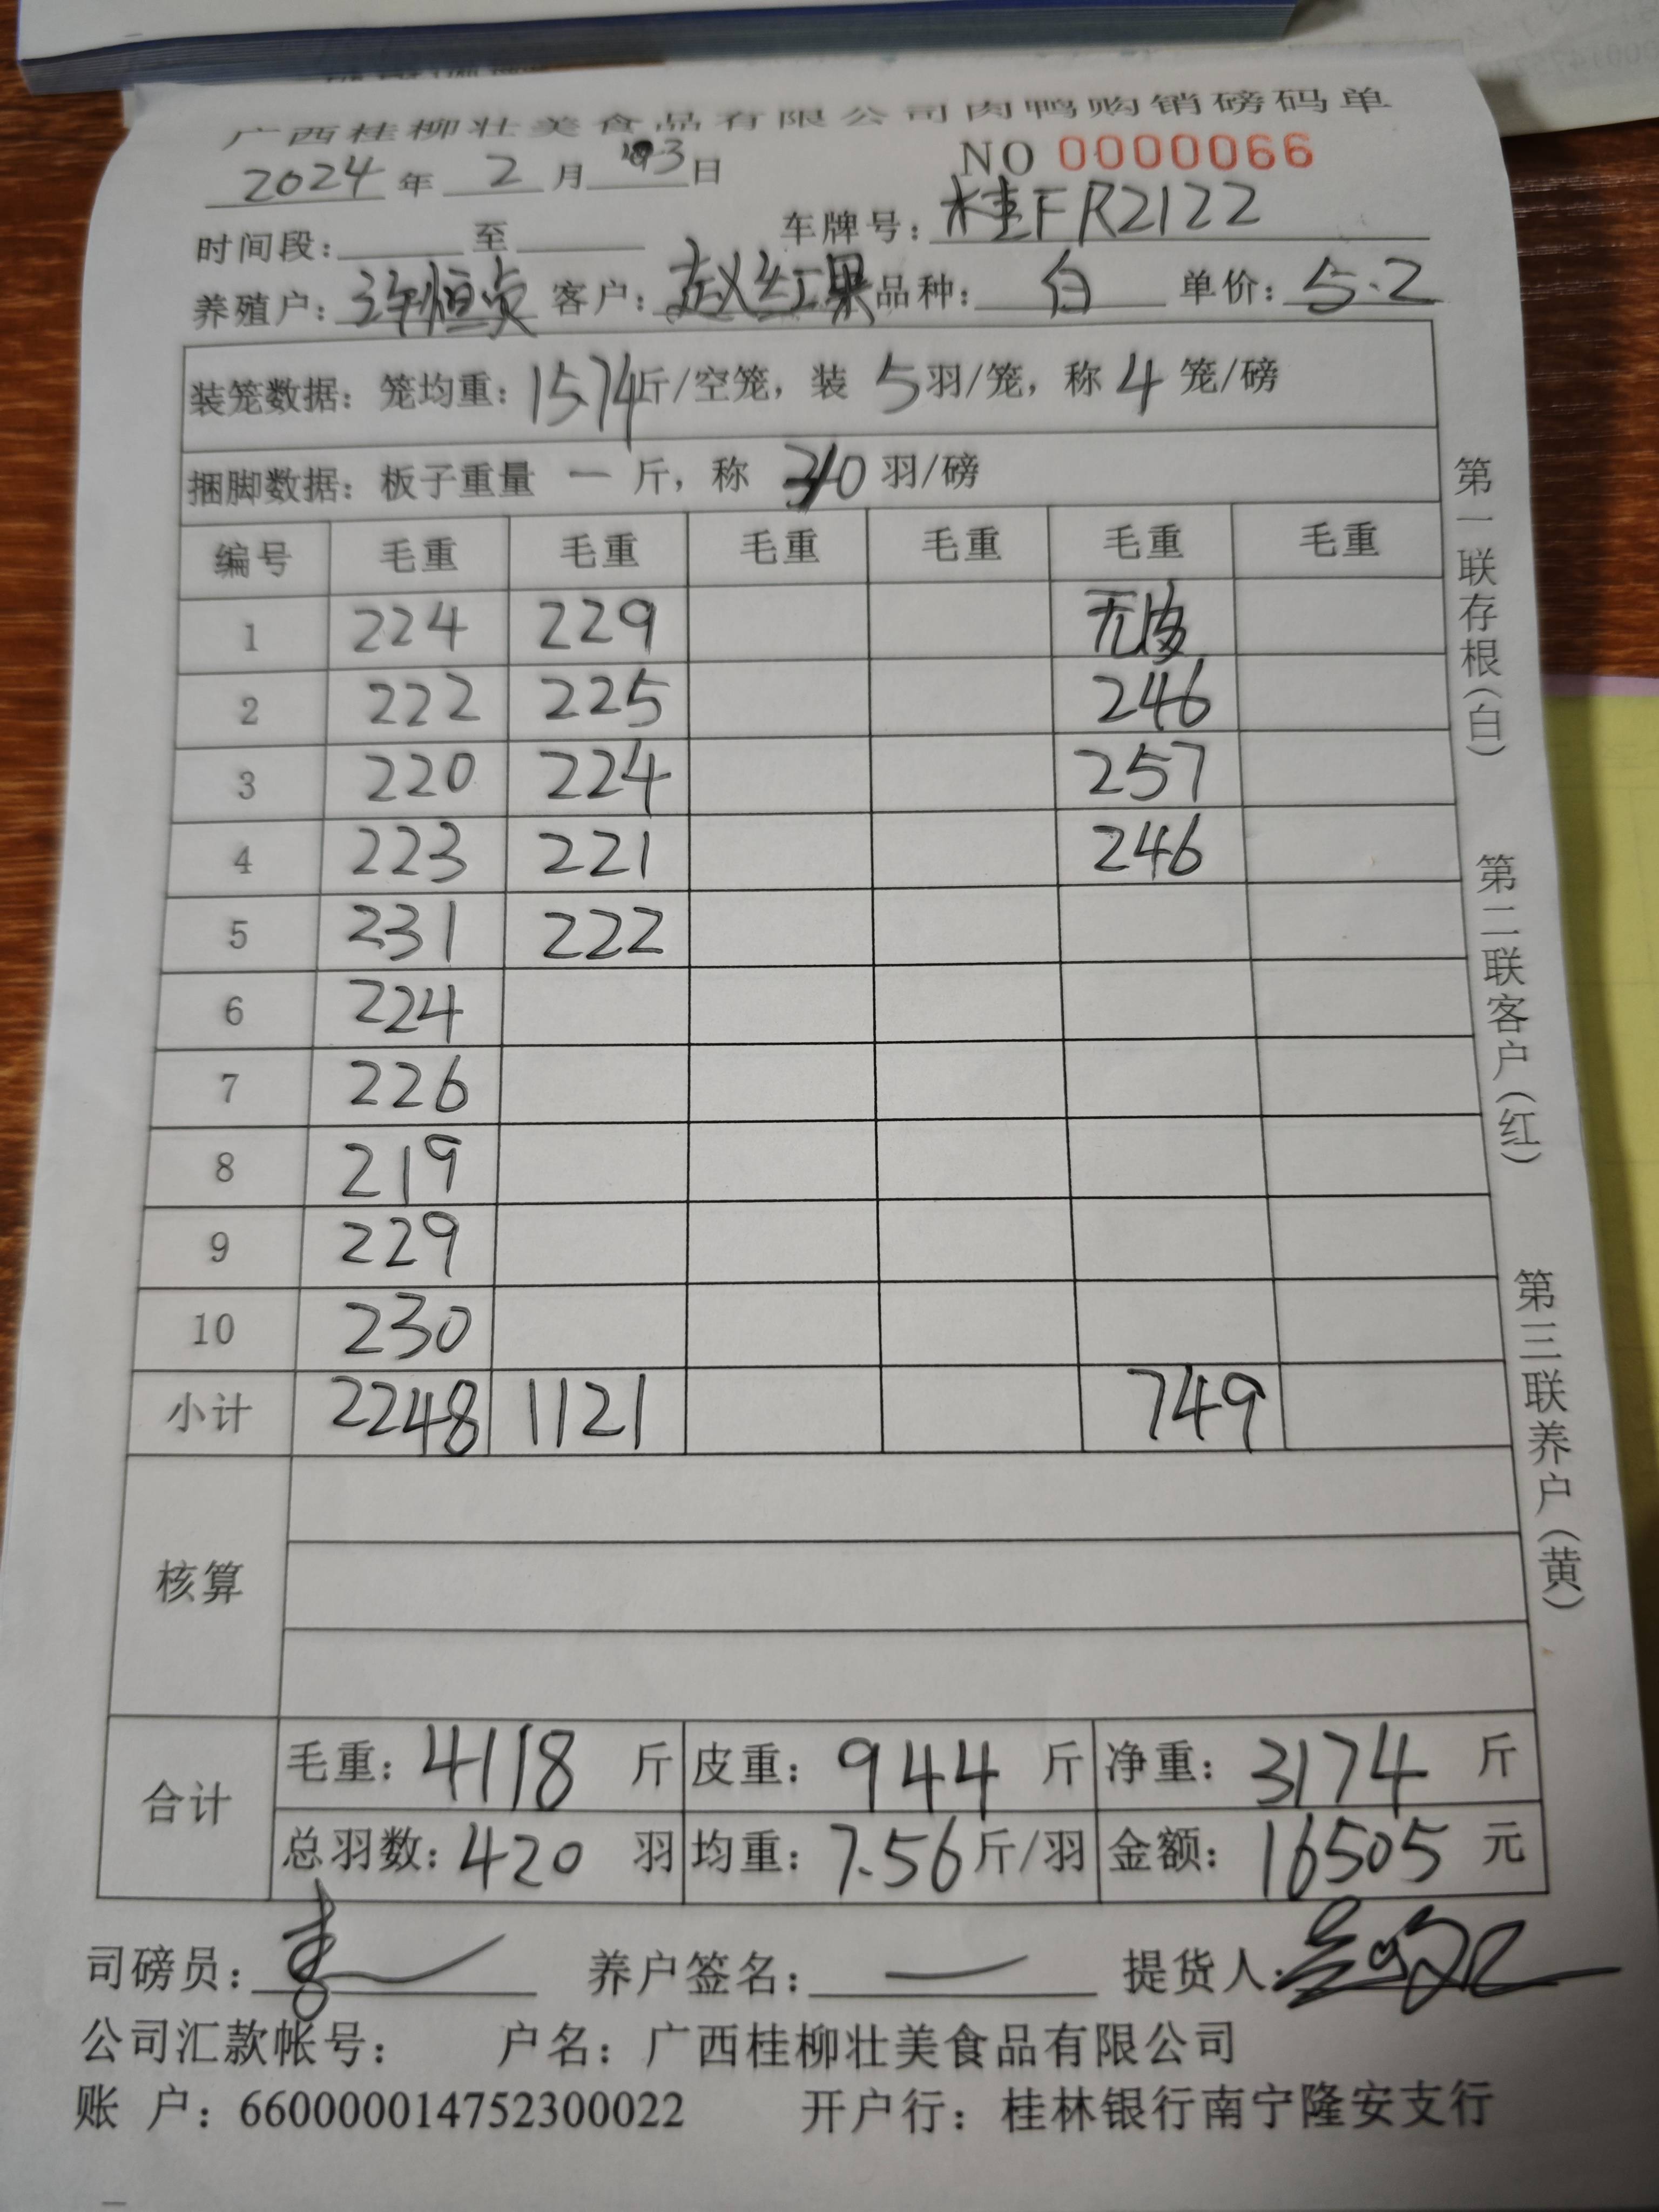 广西桂柳壮美食品有限公司肉鸭购销磅码单
2024 年 2 月 3 日 NO 0000066
时间段: 至 车牌号: 桂FR2122
养殖户: 许恒贞 客户: 赵红果 品种: 白 单价: 5.2
装笼数据: 笼均重: 15.74 斤/空笼, 装 5 羽/笼, 称 4 笼/磅
捆脚数据: 板子重量 一 斤, 称 羽/磅
编号 毛重 毛重 毛重 毛重 毛重 毛重
1 224 229 无皮
2 222 225 246
3 220 224 257
4 223 221 246
5 231 222
6 224
7 226
8 219
9 229
10 230
小计 2248 1121 749
核算
合计 毛重: 4118 斤 皮重: 944 斤 净重: 3174 斤
总羽数: 420 羽 均重: 7.56 斤/羽 金额: 16505 元
司磅员: 养户签名: 一 提货人:
公司汇款帐号: 户名: 广西桂柳壮美食品有限公司
账 户: 660000014752300022 开户行: 桂林银行南宁隆安支行
第一联存根(白)
第二联客户(红)
第三联养户(黄)